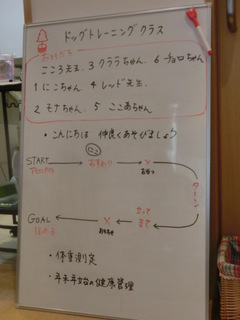 ドッグトレーニングクラス
おともだち
こころ先生. 3 クララちゃん. 6 チョロちゃん.
1 にこちゃん. 4 レッド先生.
2 モナちゃん. 5 ここあちゃん.
・こんにちは 仲良くあそびましょう
START → おすわり → × → ターン
おやつ
GOAL ← × ← まて
ほめる
おもちゃ
・体重測定
・年末年始の健康管理